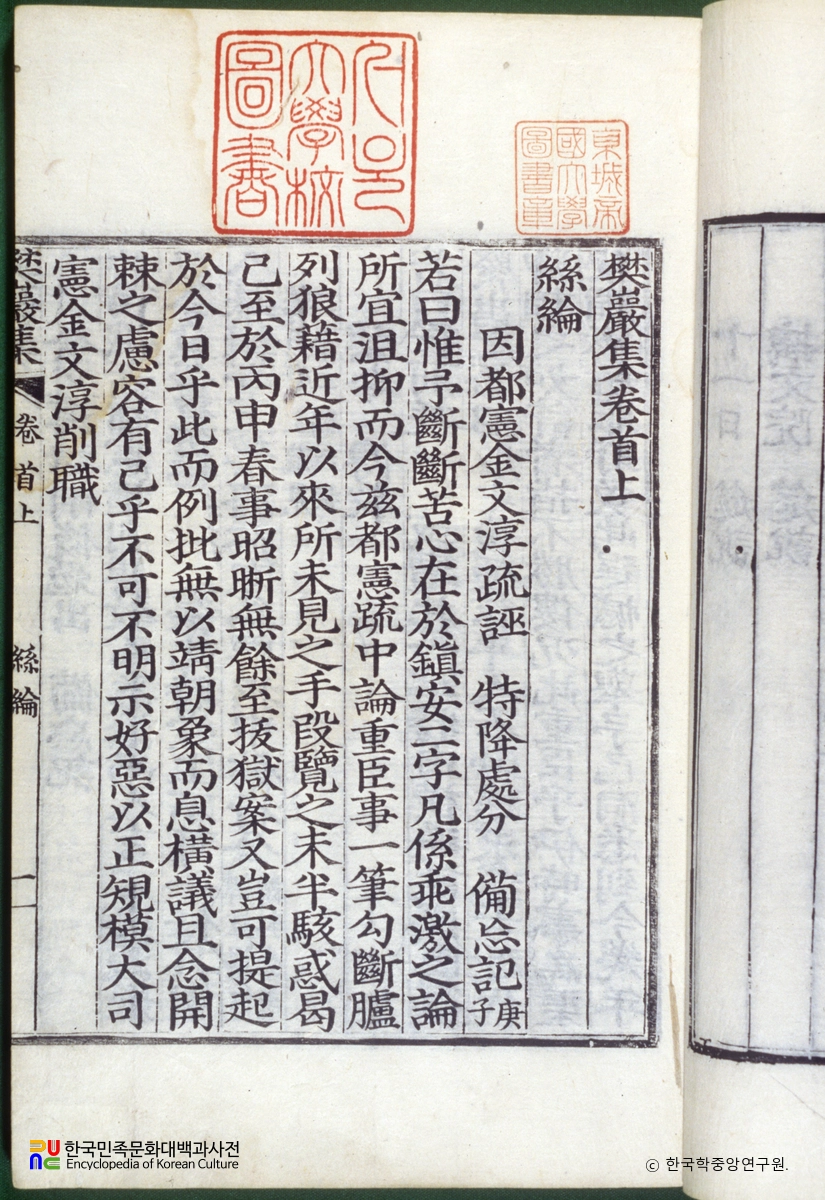 樊巖集卷首上
絲綸
因都憲金文淳疏誣 特降處分 備忘記 庚子
若曰惟予斷斷苦心在於鎭安二字凡係乖激之論
所宜沮抑而今玆都憲疏中論重臣事一筆勾斷臚
列狼藉近年以來所未見之手段覽之未半駭惑曷
已至於丙申春事昭晣無餘至拔獄案又豈可提起
於今日乎此而例批無以靖朝象而息橫議且念開
棘之慮容有己乎不可不明示好惡以正規模大司
憲金文淳削職
樊巖集 卷首上 絲綸 一
大學校
圖書
京城帝
國大學
圖書章
한국민족문화대백과사전
Encyclopedia of Korean Culture
© 한국학중앙연구원.